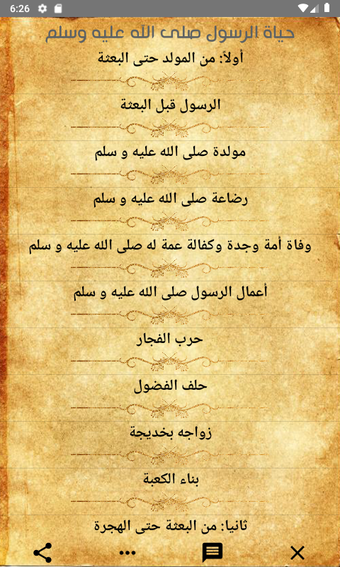 6:26
حياة الرسول صلى الله عليه وسلم
أولاً: من المولد حتى البعثة
الرسول قبل البعثة
مولدة صلى الله عليه و سلم
رضاعة صلى الله عليه و سلم
وفاة أمة وجدة وكفالة عمة له صلى الله عليه و سلم
أعمال الرسول صلى الله عليه و سلم
حرب الفجار
حلف الفضول
زواجه بخديجة
بناء الكعبة
ثانيا: من البعثة حتى الهجرة